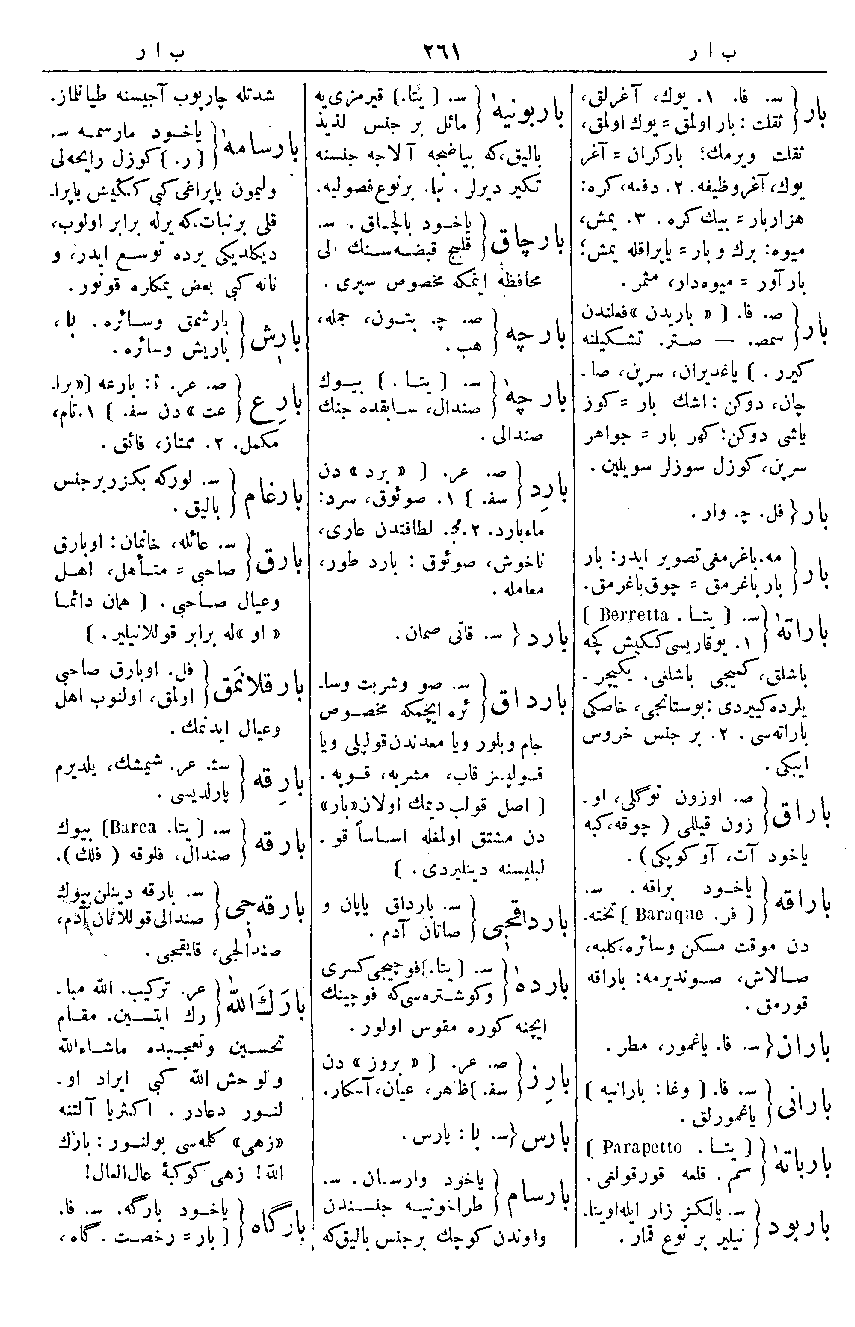 ب ا ر
٢٦١
ب ا ر
بار { س. فا. ١. يوك، آغرلق،
ثقلت : بار اولمق = يوك اولمق،
ثقلت ويرمك؛ باركران = آغر
يوك، آغروظيفه. ٢. دفعه، كره:
هزاربار = بيك كره. ٣. يمش،
ميوه: برك و بار = يابراقله يمش؛
بارآور = ميوه‌دار، مثمر.
بار { ص. فا. [ « باريدن » فعلندن
سمص. — صتر. تشكيلنه
كيرر. ] ياغديران، سرپن، صا-
چان، دوكن : اشك بار = كوز
ياشى دوكن؛ كهر بار = جواهر
سرپن، كوزل سوزلر سويلين.
بار { فل. ج. وار.
بار { مه. باغرمغى تصوير ايدر: بار
بار باغرمق = چوق باغرمق.
باراته { س. [ يتا. Berretta ]
١. يوقاريسى كنيش كچه
باشلق، كميجى باشلغى. يكيچر-
يلرده كييردى : بوستانجى، خاصكى
باراته‌سى. ٢. بر جنس خروس
ايبكى.
باراق { ص. اوزون توكلى، او-
زون قيللى ( چوقه، كبه
ياخود آت، آو كوپكى ).
باراقه { ياخود براقه. س.
[ فر. Baraque ] تخته-
دن موقت مسكن وسائره، كلبه،
صالاش، صونديرمه: باراقه
قورمق.
باران { س. فا. ياغمور، مطر.
بارانى { س. فا. [ وغا: بارانيه ]
ياغمورلق.
بارباته { [ يتا. Parapetto ]
سم. قلعه قورقولغى.
باربود { س. يالكز زار ايله اوينا-
نيلير بر نوع قمار.
باربونيه { س. [ يتا. ] قيرمزى يه
مائل بر جنس لذيذ
باليق، كه بياضجه آلاجه جنسنه
تكير ديرلر. نبا. برنوع فصوليه.
بارچاق { ياخود بالچاق. س.
قليج قبضه‌سنك الى
محافظه ايتمكه مخصوص سپرى.
بارچه { ص. ج. بتون، جمله،
هپ.
بارچه { س. [ يتا. ] بيوك
صندال، سابقده جنك
صندالى.
بارد { ص. عر. [ « برد » دن
سف. ] ١. صوئوق، سرد:
ماءبارد. ٢. مج. لطافتدن عارى،
ناخوش، صوئوق : بارد طور،
معامله.
بارد { س. قاتى صمان.
بارداق { س. صو وشربت وسا-
ئره ايچمكه مخصوص
جام وبلور ويا معدندن قولپلى ويا
قولپسز قاب، مشربه، قوپه.
[ اصل قولب ديمك اولان «بار»
دن مشتق اولمغله اساساً قو-
لپليسنه دينليردى. ]
بارداقجى { س. بارداق ياپان و
صاتان آدم.
بارده { س. [ يتا. ] فوچيجى كسرى
وكوشتره‌سى كه فوچينك
ايچنه كوره مقوس اولور.
بارز { ص. عر. [ « بروز » دن
سف. ] ظاهر، عيان، آشكار.
بارس { س. با : پارس.
بارسام { ياخود وارسان. س.
طراخونيه جنسندن
واوندن كوچك بر جنس باليق كه
شدتله چارپوب آجيسنه طيانلماز.
بارسامه { ياخود مارسمه س.
[ ر. ] كوزل رايحه‌لى
وليمون ياپراغى كبى كنيش ياپرا-
قلى بر نبات، كه يرله برابر اولوب،
ديكلديكى يرده توسع ايدر، و
نانه كبى بعض يمكلره قونور.
بارش { بارشمق وسائره. با،
باريش وسائره.
بارع { ص. عر. ئ: بارعه [« برا-
عت » دن سف. ] ١. تام،
مكمل. ٢. ممتاز، فائق.
بارغام { س. لوركه بكزر بر جنس
باليق.
بارق { س. عائله، خانمان : اوبارق
صاحبى = متأهل، اهل
وعيال صاحبى. [ همان دائما
« او » له برابر قوللانيلير. ]
بارقلانمق { فل. اوبارق صاحبى
اولمق، اولنوب اهل
وعيال ايدنمك.
بارقه { سث. عر. شيمشك، يلديرم
پارلديسى.
بارقه { س. [ يتا. Barca] بيوك
صندال، فلوقه ( فلك ).
بارقه‌جى { س. بارقه دينلن بيوك
صندالى قوللانان آدم،
صندالجى، قايقجى.
بارك الله { عر. تركيب. الله مبا-
رك ايتسين. مقام
تحسين وتعجبده ماشاءالله
ولوحش الله كبى ايراد او-
لنور دعادر. اكثريا آلتنه
«زهى» كله‌سى بولنور : بارك
الله! زهى كوكبهٔ عال العال!
بارگاه { ياخود بارگه. س. فا.
[ بار = رخصت. گاه،